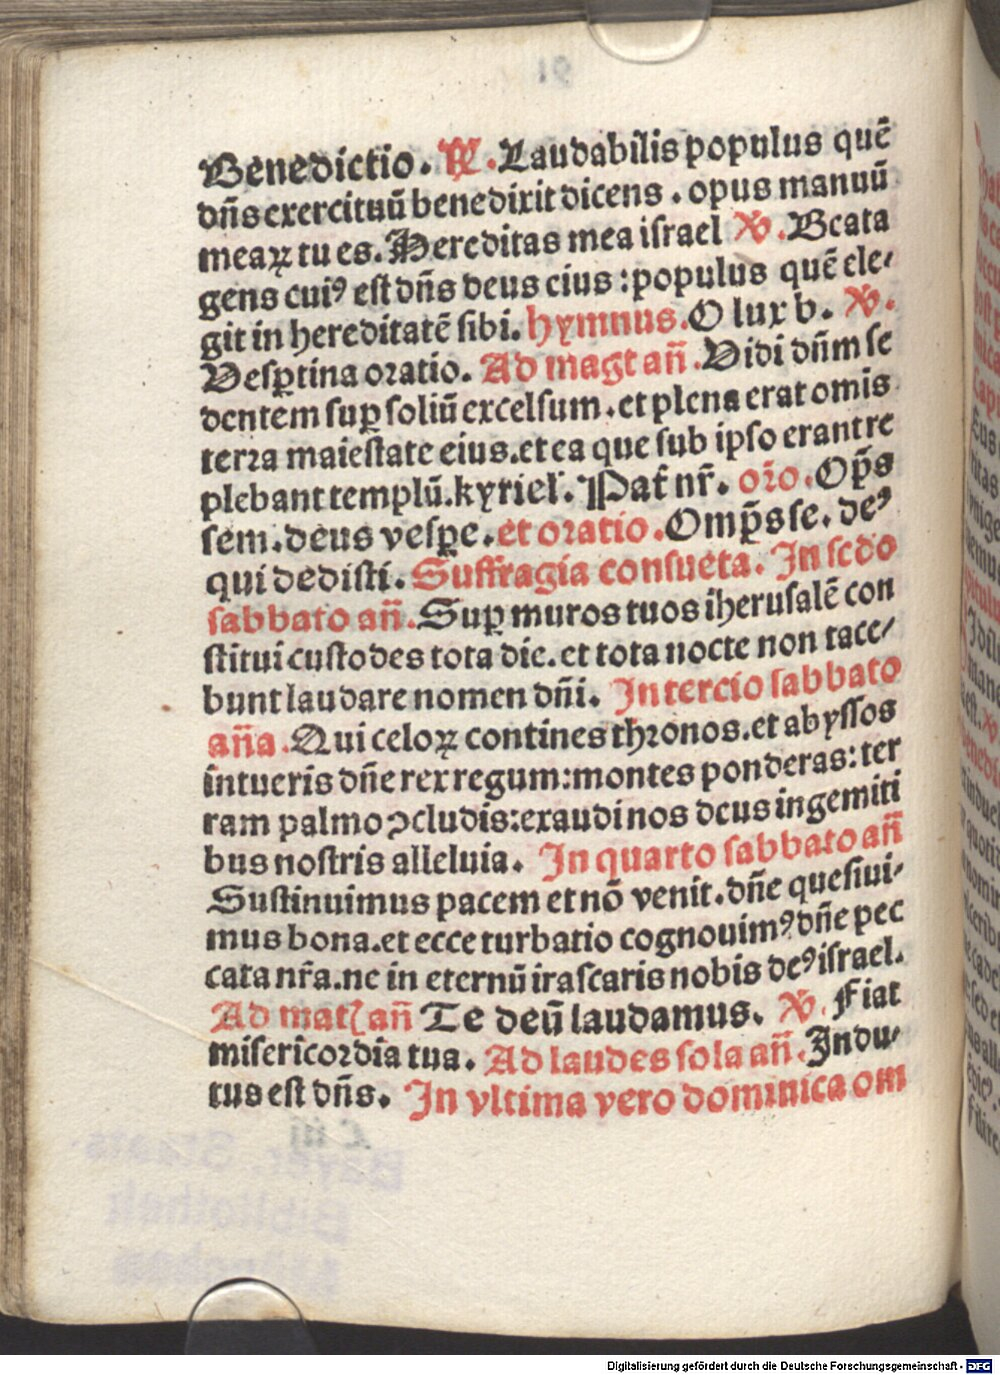 Benedictio. ℟. Laudabilis populus quē
dñs exercituū benedixit dicens . opus manuū
meaꝝ tu es. Hereditas mea israel ℣. Beata
gens cuiꝰ est dñs deus eius : populus quē ele⸗
git in hereditatē sibi. hymnus. O lux b. ℣.
Vesꝑtina oratio. Ad magt añ. Vidi dñm se
dentem suꝑ soliū excelsum. et plena erat omis
terra maiestate eius. et ea que sub ipso erant re
plebant templū. kyriel̕. Pat̄ nr̄. or̄o. Op̄s
sem. deus vesꝑe. et oratio. Omp̄s se. deꝰ
qui dedisti. Suffragia consueta. In scdo
sabbato añ. Suꝑ muros tuos iherusalē con
stitui custodes tota die. et tota nocte non tace⸗
bunt laudare nomen dñi. In tercio sabbato
aña. Qui celoꝝ contines thronos. et abyssos
intueris dñe rex regum: montes ponderas: ter
ram palmo ꝯcludis: exaudi nos deus in gemiti
bus nostris alleluia. In quarto sabbato añ
Sustinuimus pacem et nō venit. dñe quesiui⸗
mus bona. et ecce turbatio cognouimꝰ dñe pec
cata nr̄a. ne in eternū irascaris nobis deꝰ israel.
Ad matꝭ añ Te deū laudamus. ℣. Fiat
misericordia tua. Ad laudes sola añ. Indu⸗
tus est dñs. In vltima vero dominica om
Digitalisierung gefördert durch die Deutsche Forschungsgemeinschaft - DFG